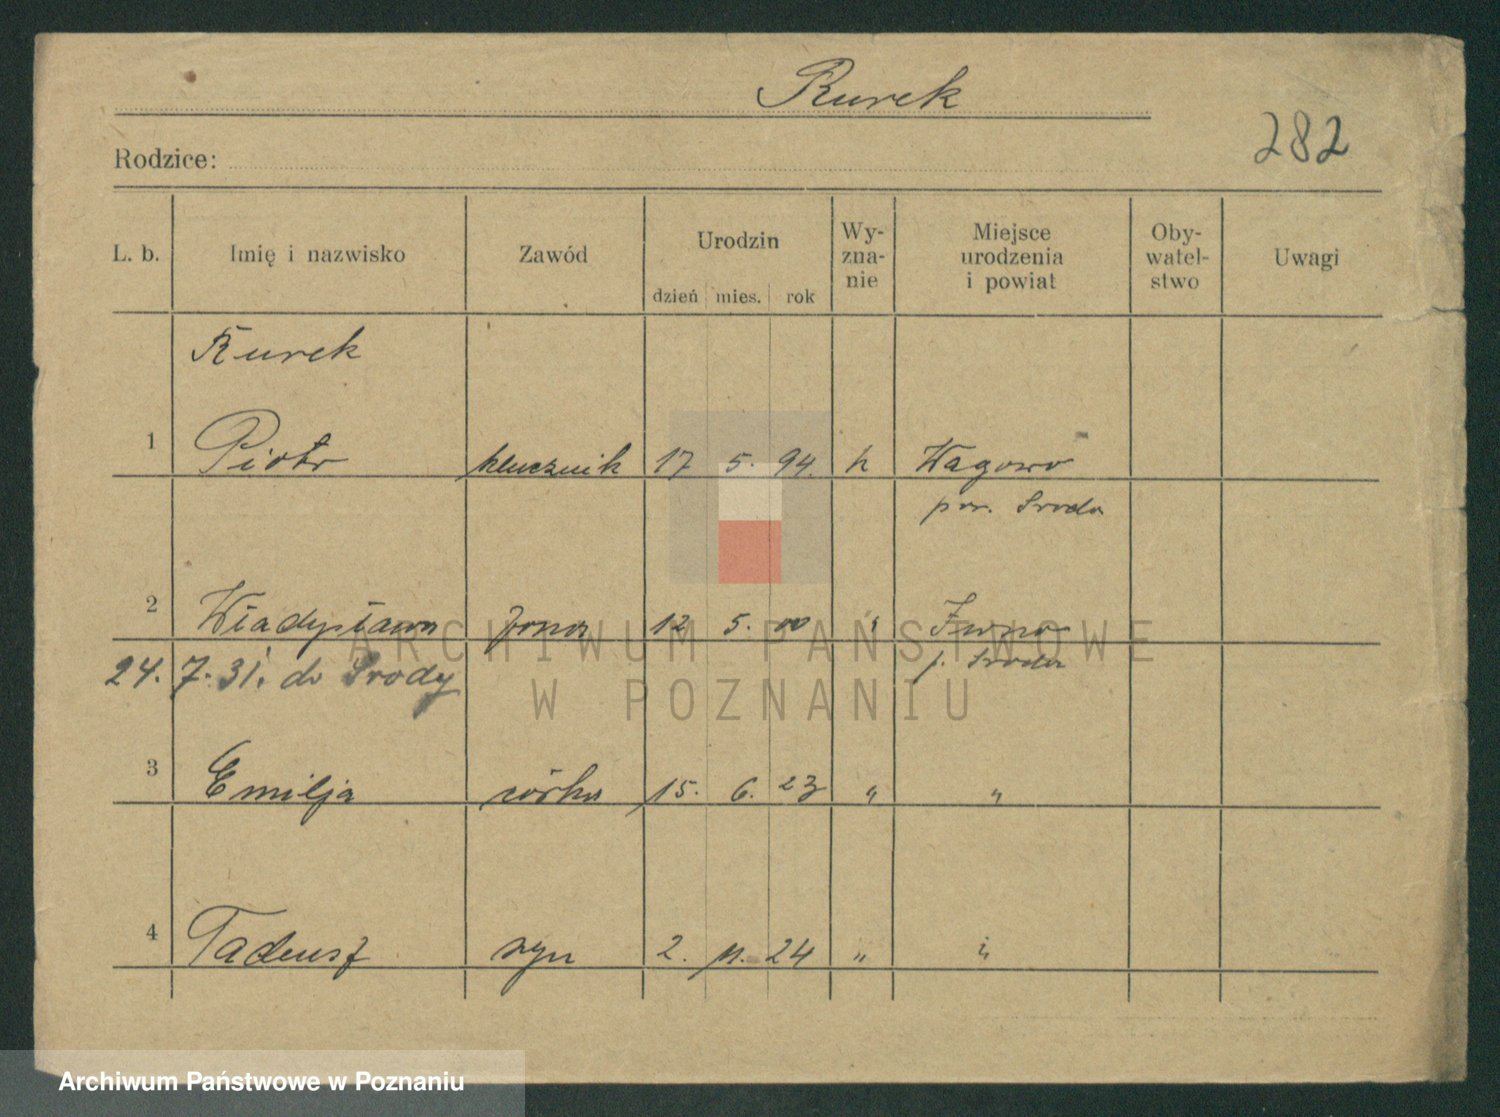 Kurek
282
Rodzice:
L. b. Imię i nazwisko Zawód Urodzin dzień mies. rok Wy-zna-nie Miejsce urodzenia i powiat Oby-watel-stwo Uwagi
Kurek
1 Piotr klucznik 17 5. 94. k Wagowo
pow. Środa
2 Władysława żona 12 5. 00 " Iwno
p. Środa
24. 7. 31. do Środy
3 Emilja córka 15. 6. 23 " "
4 Tadeusz syn 2. 11. 24 " "
ARCHIWUM PAŃSTWOWE
W POZNANIU
Archiwum Państwowe w Poznaniu